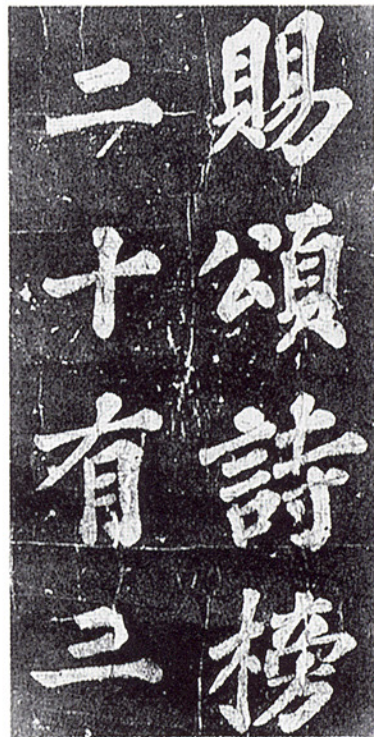 賜頌詩榜
二十有三